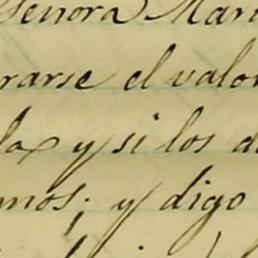 Señora Mari
rarse el valor
la y si los d
mos; y digo